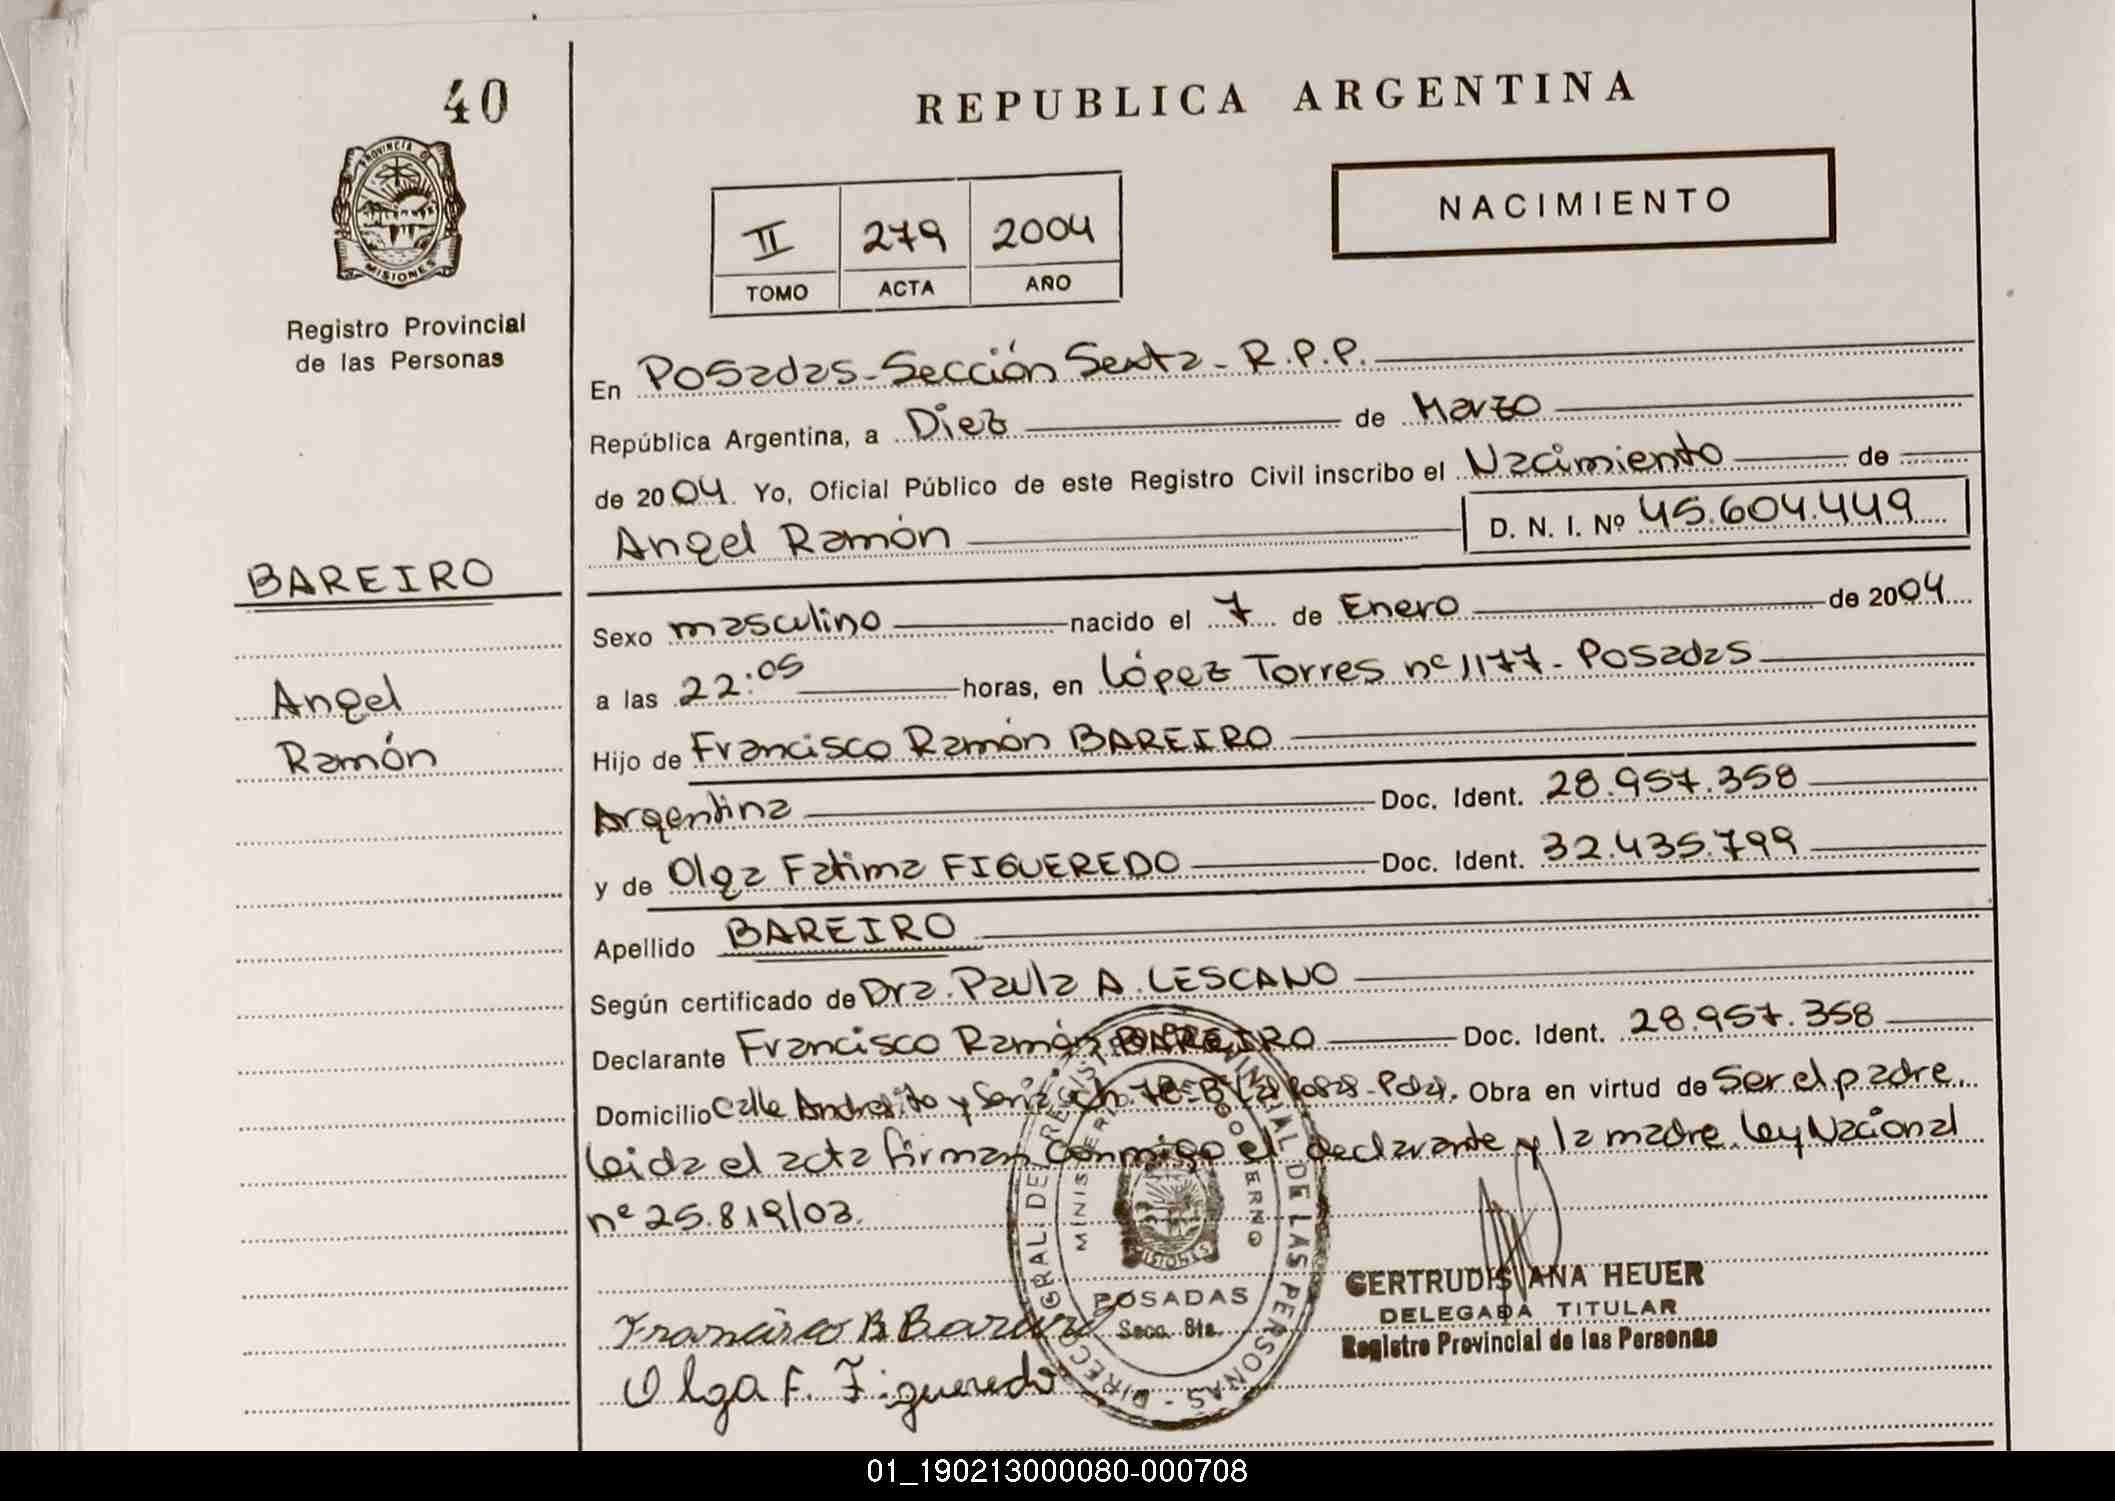 40
REPUBLICA ARGENTINA
PROVINCIA D
MISIONES
Registro Provincial
de las Personas
II 279 2004
TOMO ACTA AÑO
NACIMIENTO
En Posadas-Sección Sexta-R.P.P.
República Argentina, a Diez de Marzo
de 2004. Yo, Oficial Público de este Registro Civil inscribo el Nacimiento de
Angel Ramón D. N. I. Nº 45.604.449
BAREIRO
Angel
Ramón
Sexo masculino nacido el 7 de Enero de 2004
a las 22:05 horas, en López Torres nº 1177-Posadas
Hijo de Francisco Ramón BAREIRO
Argentina Doc. Ident. 28.957.358
y de Olga Fatima FIGUEREDO Doc. Ident. 32.435.799
Apellido BAREIRO
Según certificado de Dra. Paula A. LESCANO
Declarante Francisco Ramón BAREIRO Doc. Ident. 28.957.358
Domicilio Calle Andresito y Ch. Obra en virtud de Ser el padre.
Leida el acta firman conmigo el declarante y la madre. Ley Nacional
nº 25.819/03.
DIREC GRAL. DEL REGIST DE LAS PERSONAS
MINISTERIO DE GOBIERNO
MISIONES
POSADAS
Secc. 6ta.
Francisco R Bareiro
Olga F. Figueredo
GERTRUDIS ANA HEUER
DELEGADA TITULAR
Registro Provincial de las Personas
01_190213000080-000708